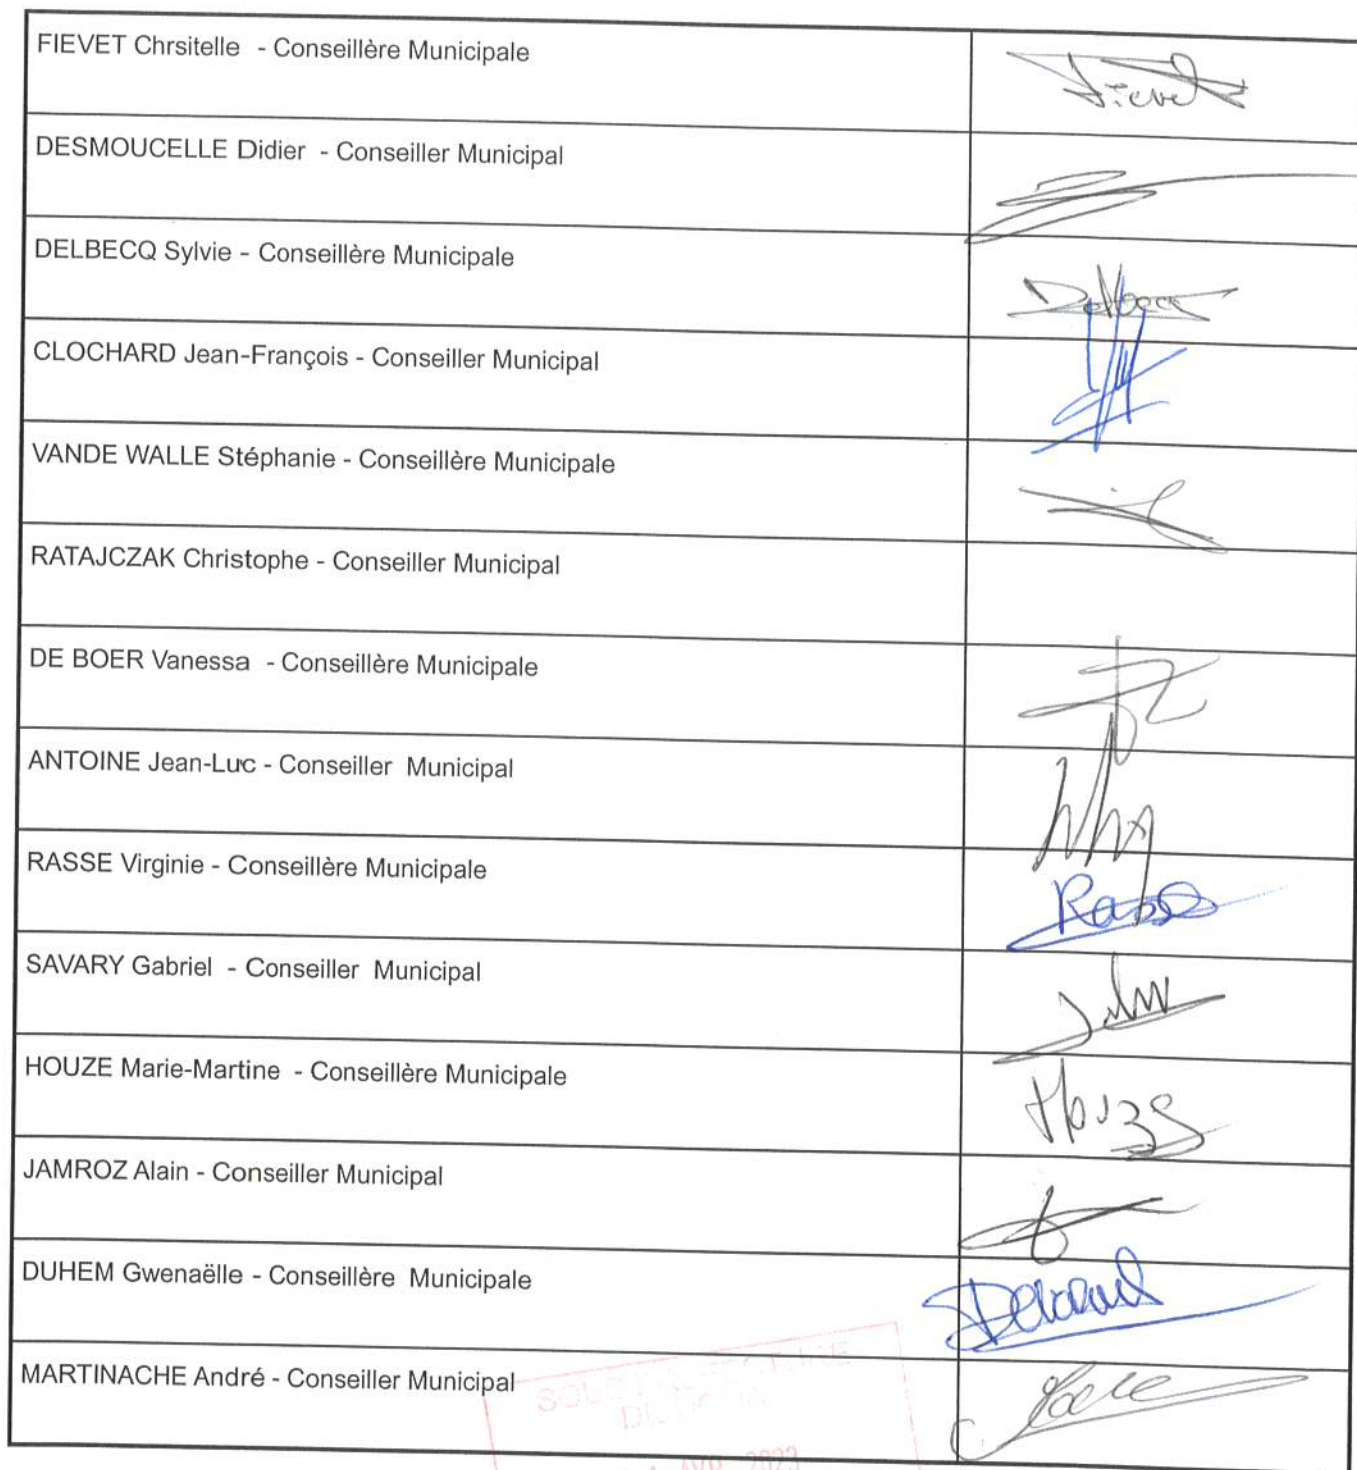 FIEVET Chrsitelle - Conseillère Municipale
Fievet
DESMOUCELLE Didier - Conseiller Municipal
DELBECQ Sylvie - Conseillère Municipale
CLOCHARD Jean-François - Conseiller Municipal
VANDE WALLE Stéphanie - Conseillère Municipale
RATAJCZAK Christophe - Conseiller Municipal
DE BOER Vanessa - Conseillère Municipale
ANTOINE Jean-Luc - Conseiller Municipal
RASSE Virginie - Conseillère Municipale
Rasse
SAVARY Gabriel - Conseiller Municipal
HOUZE Marie-Martine - Conseillère Municipale
Houze
JAMROZ Alain - Conseiller Municipal
DUHEM Gwenaëlle - Conseillère Municipale
MARTINACHE André - Conseiller Municipal
AVR. 2023